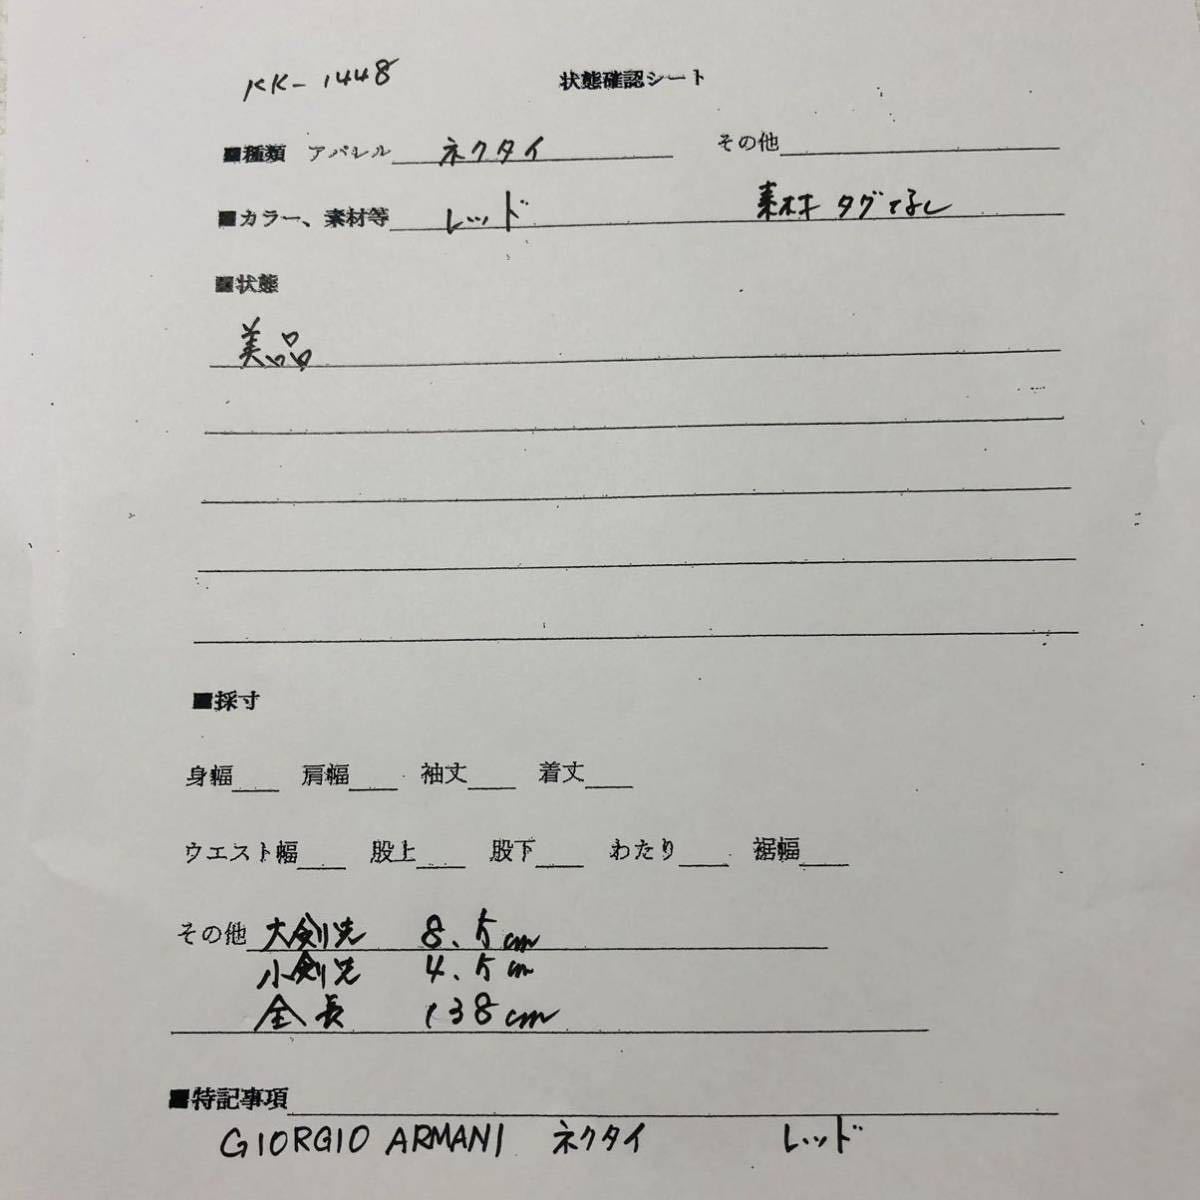 KK-1448 状態確認シート
■種類 アパレル ネクタイ その他
■カラー、素材等 レッド 素材 タグなし
■状態
美品
■採寸
身幅 肩幅 袖丈 着丈
ウエスト幅 股上 股下 わたり 裾幅
その他 大剣先 8.5cm
小剣先 4.5cm
全長 138cm
■特記事項
GIORGIO ARMANI ネクタイ レッド